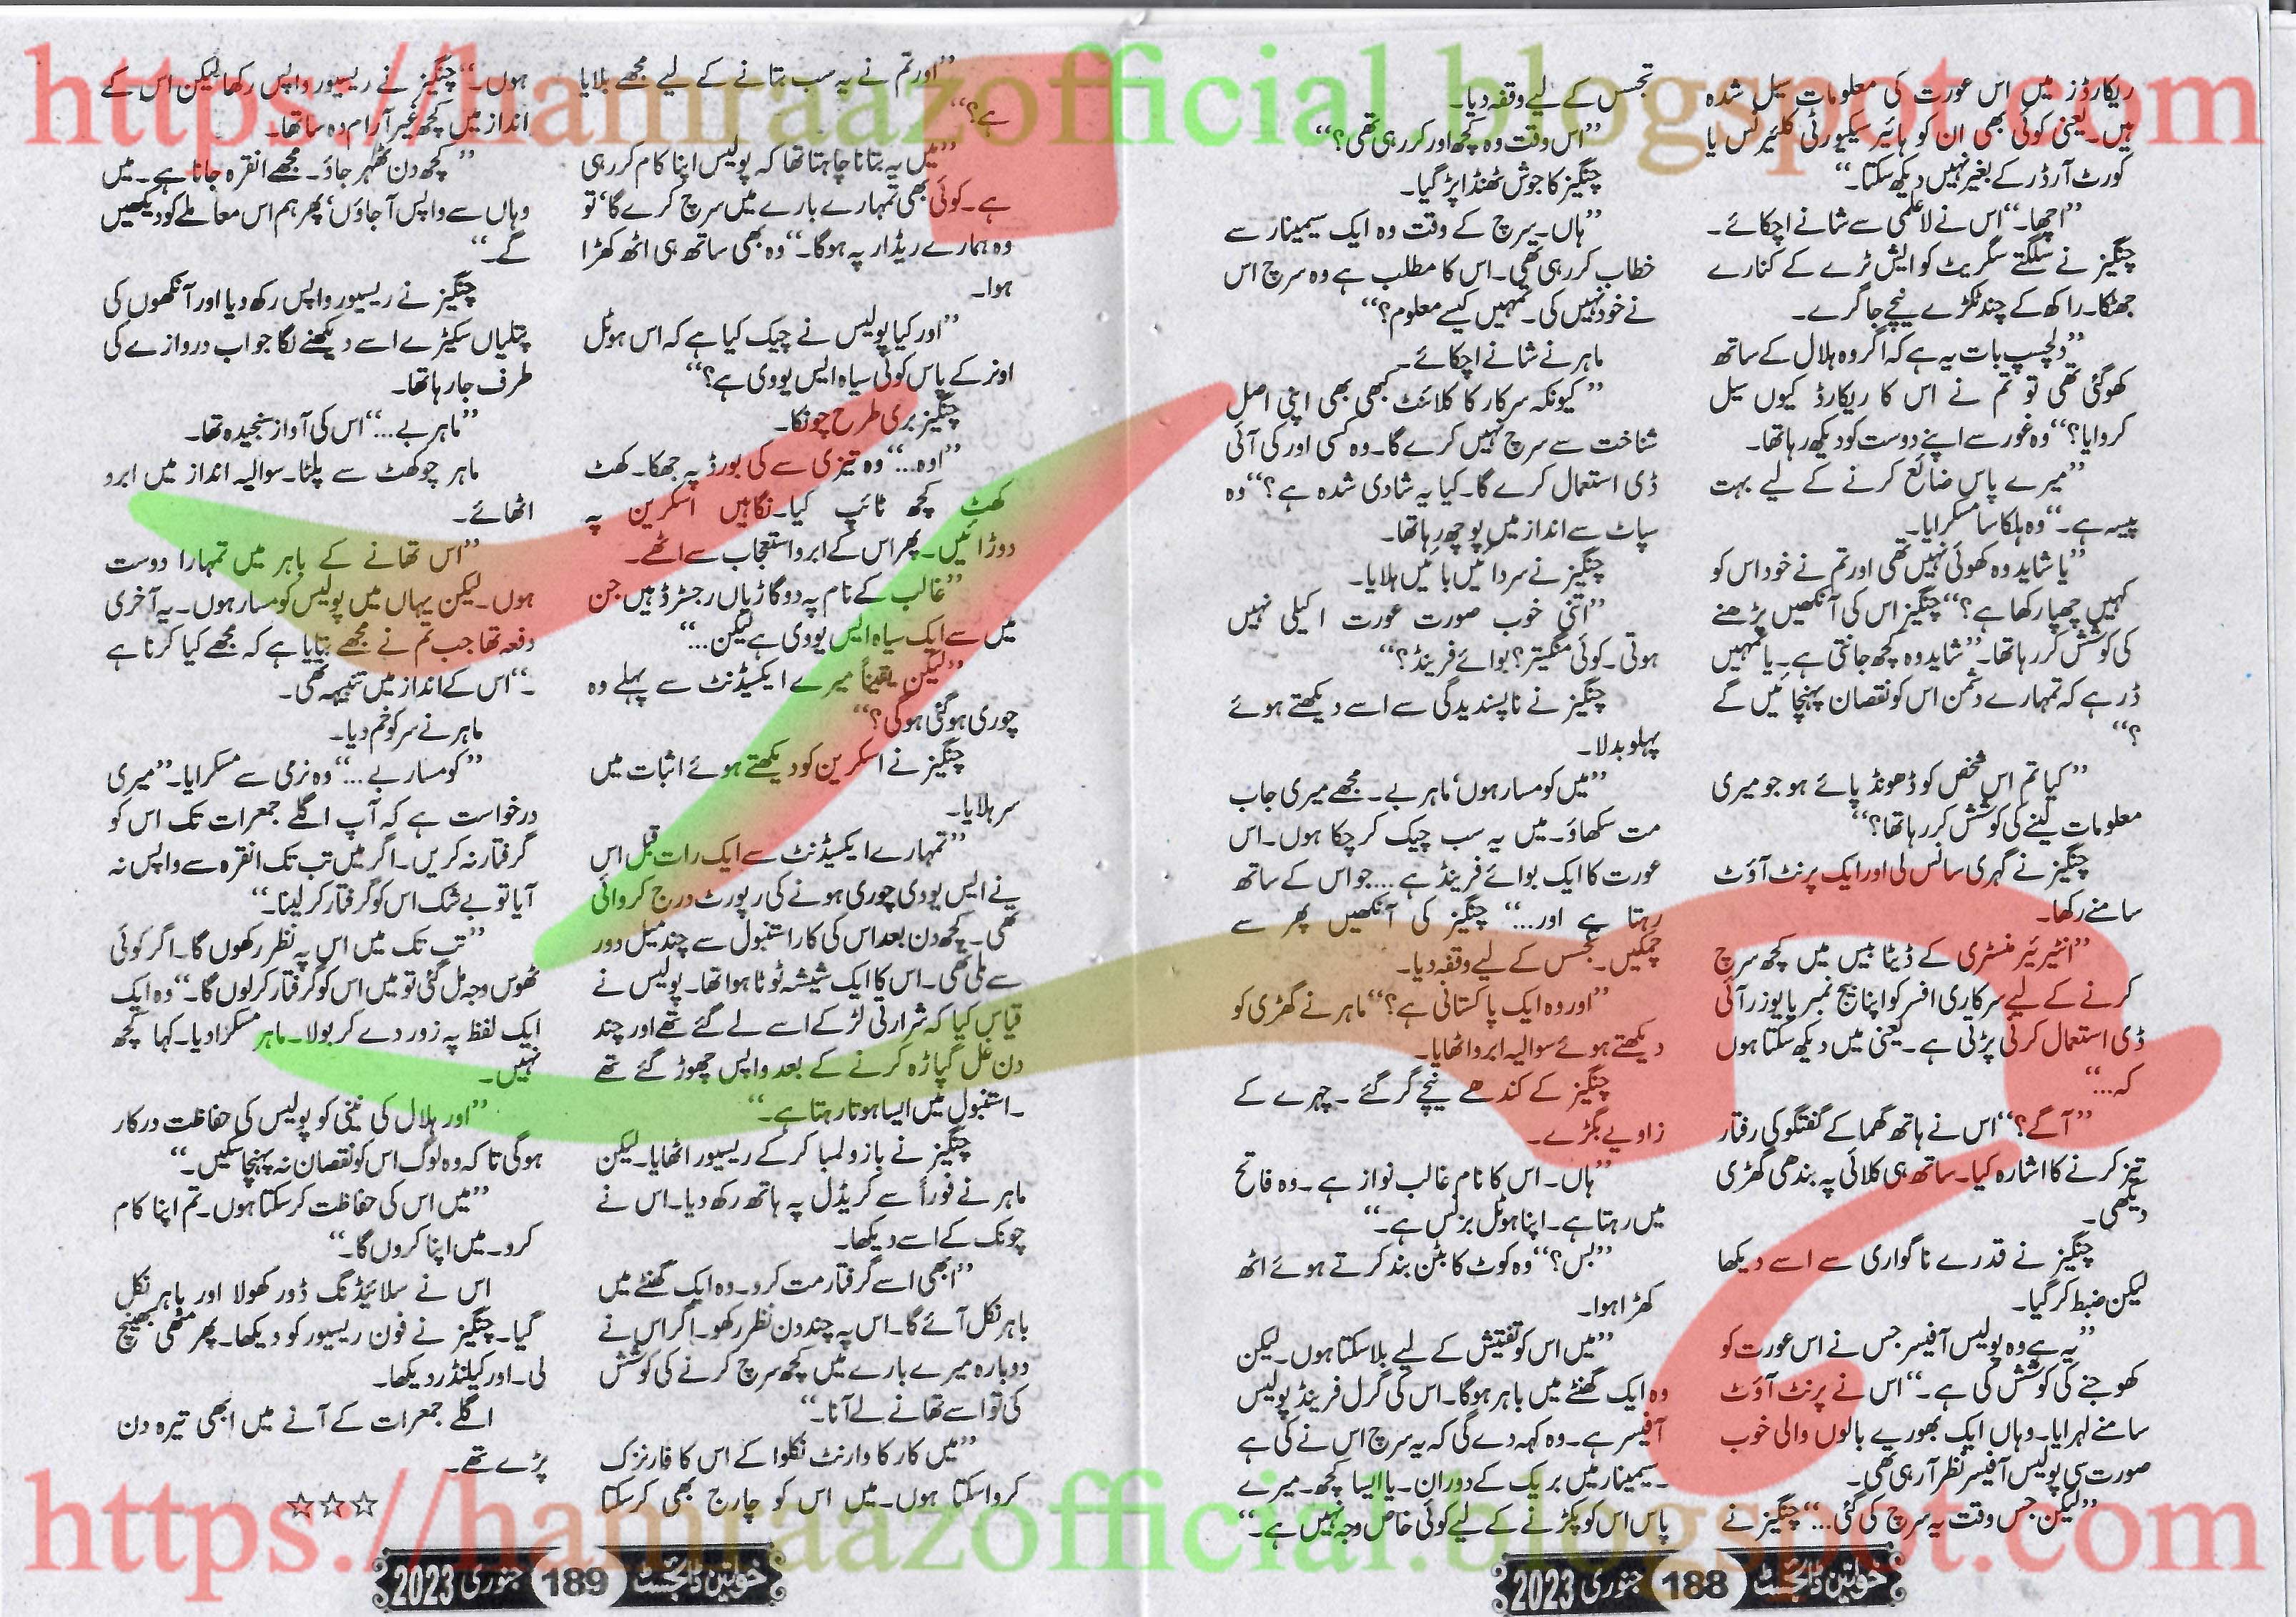 https://hamraazofficial.blogspot.com
ریکارڈز میں اس عورت کی معلومات سیل شدہ
ہیں۔ یعنی کوئی بھی ان کو ہائیر سیکیورٹی کلئیرنس یا
کورٹ آرڈر کے بغیر نہیں دیکھ سکتا۔‘‘
’’اچھا۔‘‘ اس نے لاعلمی سے شانے اچکائے۔
چنگیز نے سلگتے سگریٹ کو ایش ٹرے کے کنارے
جھٹکا۔ راکھ کے چند ٹکڑے نیچے جا گرے۔
’’دلچسپ بات یہ ہے کہ اگر وہ ہلال کے ساتھ
کھو گئی تھی تو تم نے اس کا ریکارڈ کیوں سیل
کروایا؟‘‘ وہ غور سے اپنے دوست کو دیکھ رہا تھا۔
’’میرے پاس ضائع کرنے کے لیے بہت
پیسہ ہے۔‘‘ وہ ہلکا سا مسکرایا۔
’’یا شاید وہ کھوئی نہیں تھی اور تم نے خود اس کو
کہیں چھپا رکھا ہے؟‘‘ چنگیز اس کی آنکھیں پڑھنے
کی کوشش کر رہا تھا۔ ’’شاید وہ کچھ جانتی ہے۔ یا تمہیں
ڈر ہے کہ تمہارے دشمن اس کو نقصان پہنچائیں گے
؟‘‘
’’کیا تم اس شخص کو ڈھونڈ پائے ہو جو میری
معلومات لینے کی کوشش کر رہا تھا؟‘‘
چنگیز نے گہری سانس لی اور ایک پرنٹ آؤٹ
سامنے رکھا۔
’’انٹیرئیر منسٹری کے ڈیٹا بیس میں کچھ سرچ
کرنے کے لیے سرکاری افسر کو اپنا بیج نمبر یا یوزر آئی
ڈی استعمال کرنی پڑتی ہے۔ یعنی میں دیکھ سکتا ہوں
کہ...‘‘
’’آگے؟‘‘ اس نے ہاتھ گھما کے گفتگو کی رفتار
تیز کرنے کا اشارہ کیا۔ ساتھ ہی کلائی پہ بندھی گھڑی
دیکھی۔
چنگیز نے قدرے ناگواری سے اسے دیکھا
لیکن ضبط کر گیا۔
’’یہ ہے وہ پولیس آفیسر جس نے اس عورت کو
کھوجنے کی کوشش کی ہے۔‘‘ اس نے پرنٹ آؤٹ
سامنے لہرایا۔ وہاں ایک بھورے بالوں والی خوب
صورت سی پولیس آفیسر نظر آرہی تھی۔
’’لیکن جس وقت یہ سرچ کی گئی...‘‘ چنگیز نے
تجسس کے لیے وقفہ دیا۔
’’اس وقت وہ کچھ اور کر رہی تھی؟‘‘
چنگیز کا جوش ٹھنڈا پڑ گیا۔
’’ہاں۔ سرچ کے وقت وہ ایک سیمینار سے
خطاب کر رہی تھی۔ اس کا مطلب ہے وہ سرچ اس
نے خود نہیں کی۔ تمہیں کیسے معلوم؟‘‘
ماہر نے شانے اچکائے۔
’’کیونکہ سرکار کا کلائنٹ کبھی بھی اپنی اصل
شناخت سے سرچ نہیں کرے گا۔ وہ کسی اور کی آئی
ڈی استعمال کرے گا۔ کیا یہ شادی شدہ ہے؟‘‘ وہ
سپاٹ سے انداز میں پوچھ رہا تھا۔
چنگیز نے سر دائیں بائیں ہلایا۔
’’اتنی خوب صورت عورت اکیلی نہیں
ہوتی۔ کوئی منگیتر؟ بوائے فرینڈ؟‘‘
چنگیز نے ناپسندیدگی سے اسے دیکھتے ہوئے
پہلو بدلا۔
’’میں کومسار ہوں‘ ماہر بے۔ مجھے میری جاب
مت سکھاؤ۔ میں یہ سب چیک کر چکا ہوں۔ اس
عورت کا ایک بوائے فرینڈ ہے .... جو اس کے ساتھ
رہتا ہے اور...‘‘ چنگیز کی آنکھیں پھر سے
چمکیں۔ تجسس کے لیے وقفہ دیا۔
’’اور وہ ایک پاکستانی ہے؟‘‘ ماہر نے گھڑی کو
دیکھتے ہوئے سوالیہ ابرو اٹھایا۔
چنگیز کے کندھے نیچے گر گئے ۔ چہرے کے
زاویے بگڑے۔
’’ہاں۔ اس کا نام غالب نواز ہے ۔ وہ فاتح
میں رہتا ہے۔ اپنا ہوٹل بزنس ہے۔‘‘
’’بس؟‘‘ وہ کوٹ کا بٹن بند کرتے ہوئے اٹھ
کھڑا ہوا۔
’’میں اس کو تفتیش کے لیے بلا سکتا ہوں۔ لیکن
وہ ایک گھنٹے میں باہر ہوگا۔ اس کی گرل فرینڈ پولیس
آفیسر ہے۔ وہ کہہ دے گی کہ یہ سرچ اس نے کی ہے
۔ سیمینار میں بریک کے دوران۔ یا ایسا کچھ۔ میرے
پاس اس کو پکڑنے کے لیے کوئی خاص وجہ نہیں ہے۔‘‘
خواتین ڈائجسٹ 188 جنوری 2023
’’اور تم نے یہ سب بتانے کے لیے مجھے بلایا
ہے؟‘‘
’’میں یہ بتانا چاہتا تھا کہ پولیس اپنا کام کر رہی
ہے۔ کوئی بھی تمہارے بارے میں سرچ کرے گا‘ تو
وہ ہمارے ریڈار پہ ہوگا۔‘‘ وہ بھی ساتھ ہی اٹھ کھڑا
ہوا۔
’’اور کیا پولیس نے چیک کیا ہے کہ اس ہوٹل
اونر کے پاس کوئی سیاہ ایس یو وی ہے؟‘‘
چنگیز بری طرح چونکا۔
’’اوہ...‘‘ وہ تیزی سے کی بورڈ پہ جھکا۔ کھٹ
کھٹ کچھ ٹائپ کیا۔ نگاہیں اسکرین پہ
دوڑائیں۔ پھر اس کے ابرو استعجاب سے اٹھے۔
’’غالب کے نام پہ دو گاڑیاں رجسٹرڈ ہیں جن
میں سے ایک سیاہ ایس یو وی ہے لیکن...‘‘
’’لیکن یقیناً میرے ایکسیڈنٹ سے پہلے وہ
چوری ہو گئی ہو گی؟‘‘
چنگیز نے اسکرین کو دیکھتے ہوئے اثبات میں
سر ہلایا۔
’’تمہارے ایکسیڈنٹ سے ایک رات قبل اس
نے ایس یو وی چوری ہونے کی رپورٹ درج کروائی
تھی۔ کچھ دن بعد اس کی کار استنبول سے چند میل دور
سے ملی تھی۔ اس کا ایک شیشہ ٹوٹا ہوا تھا۔ پولیس نے
قیاس کیا کہ شرارتی لڑکے اسے لے گئے تھے اور چند
دن غل گپاڑہ کرنے کے بعد واپس چھوڑ گئے تھے
۔ استنبول میں ایسا ہوتا رہتا ہے۔‘‘
چنگیز نے بازو لمبا کر کے ریسیور اٹھایا۔ لیکن
ماہر نے فوراً سے کریڈل پہ ہاتھ رکھ دیا۔ اس نے
چونک کے اسے دیکھا۔
’’ابھی اسے گرفتار مت کرو۔ وہ ایک گھنٹے میں
باہر نکل آئے گا۔ اس پہ چند دن نظر رکھو۔ اگر اس نے
دوبارہ میرے بارے میں کچھ سرچ کرنے کی کوشش
کی تو اسے تھانے لے آنا۔‘‘
’’میں کار کا وارنٹ نکلوا کے اس کا فارنزک
کروا سکتا ہوں۔ میں اس کو چارج بھی کر سکتا
ہوں۔‘‘ چنگیز نے ریسیور واپس رکھا لیکن اس کے
انداز میں کچھ غیر آرام دہ سا تھا۔
’’کچھ دن ٹھہر جاؤ۔ مجھے انقرہ جانا ہے۔ میں
وہاں سے واپس آجاؤں‘ پھر ہم اس معاملے کو دیکھیں
گے۔‘‘
چنگیز نے ریسیور واپس رکھ دیا اور آنکھوں کی
پتلیاں سکیڑے اسے دیکھنے لگا جو اب دروازے کی
طرف جا رہا تھا۔
’’ماہر بے...‘‘ اس کی آواز سنجیدہ تھا۔
ماہر چوکھٹ سے پلٹا۔ سوالیہ انداز میں ابرو
اٹھائے۔
’’اس تھانے کے باہر میں تمہارا دوست
ہوں۔ لیکن یہاں میں پولیس کومسار ہوں۔ یہ آخری
دفعہ تھا جب تم نے مجھے بتایا ہے کہ مجھے کیا کرنا ہے
۔‘‘ اس کے انداز میں تنبیہہ تھی۔
ماہر نے سر کو خم دیا۔
’’کومسار بے ...‘‘ وہ نرمی سے مسکرایا۔ ’’میری
درخواست ہے کہ آپ اگلے جمعرات تک اس کو
گرفتار نہ کریں۔ اگر میں تب تک انقرہ سے واپس نہ
آیا تو بے شک اس کو گرفتار کر لینا۔‘‘
’’تب تک میں اس پہ نظر رکھوں گا۔ اگر کوئی
ٹھوس وجہ مل گئی تو میں اس کو گرفتار کر لوں گا۔‘‘ وہ ایک
ایک لفظ پہ زور دے کر بولا۔ ماہر مسکرا دیا۔ کہا کچھ
نہیں۔
’’اور ہلال کی نینی کو پولیس کی حفاظت درکار
ہوگی تاکہ وہ لوگ اس کو نقصان نہ پہنچا سکیں۔‘‘
’’میں اس کی حفاظت کر سکتا ہوں۔ تم اپنا کام
کرو۔ میں اپنا کروں گا۔‘‘
اس نے سلائیڈنگ ڈور کھولا اور باہر نکل
گیا۔ چنگیز نے فون ریسیور کو دیکھا۔ پھر مٹھی بھینچ
لی۔ اور کیلنڈر دیکھا۔
اگلے جمعرات کے آنے میں ابھی تیرہ دن
پڑے تھے۔
☆☆☆
خواتین ڈائجسٹ 189 جنوری 2023
https://hamraazofficial.blogspot.com